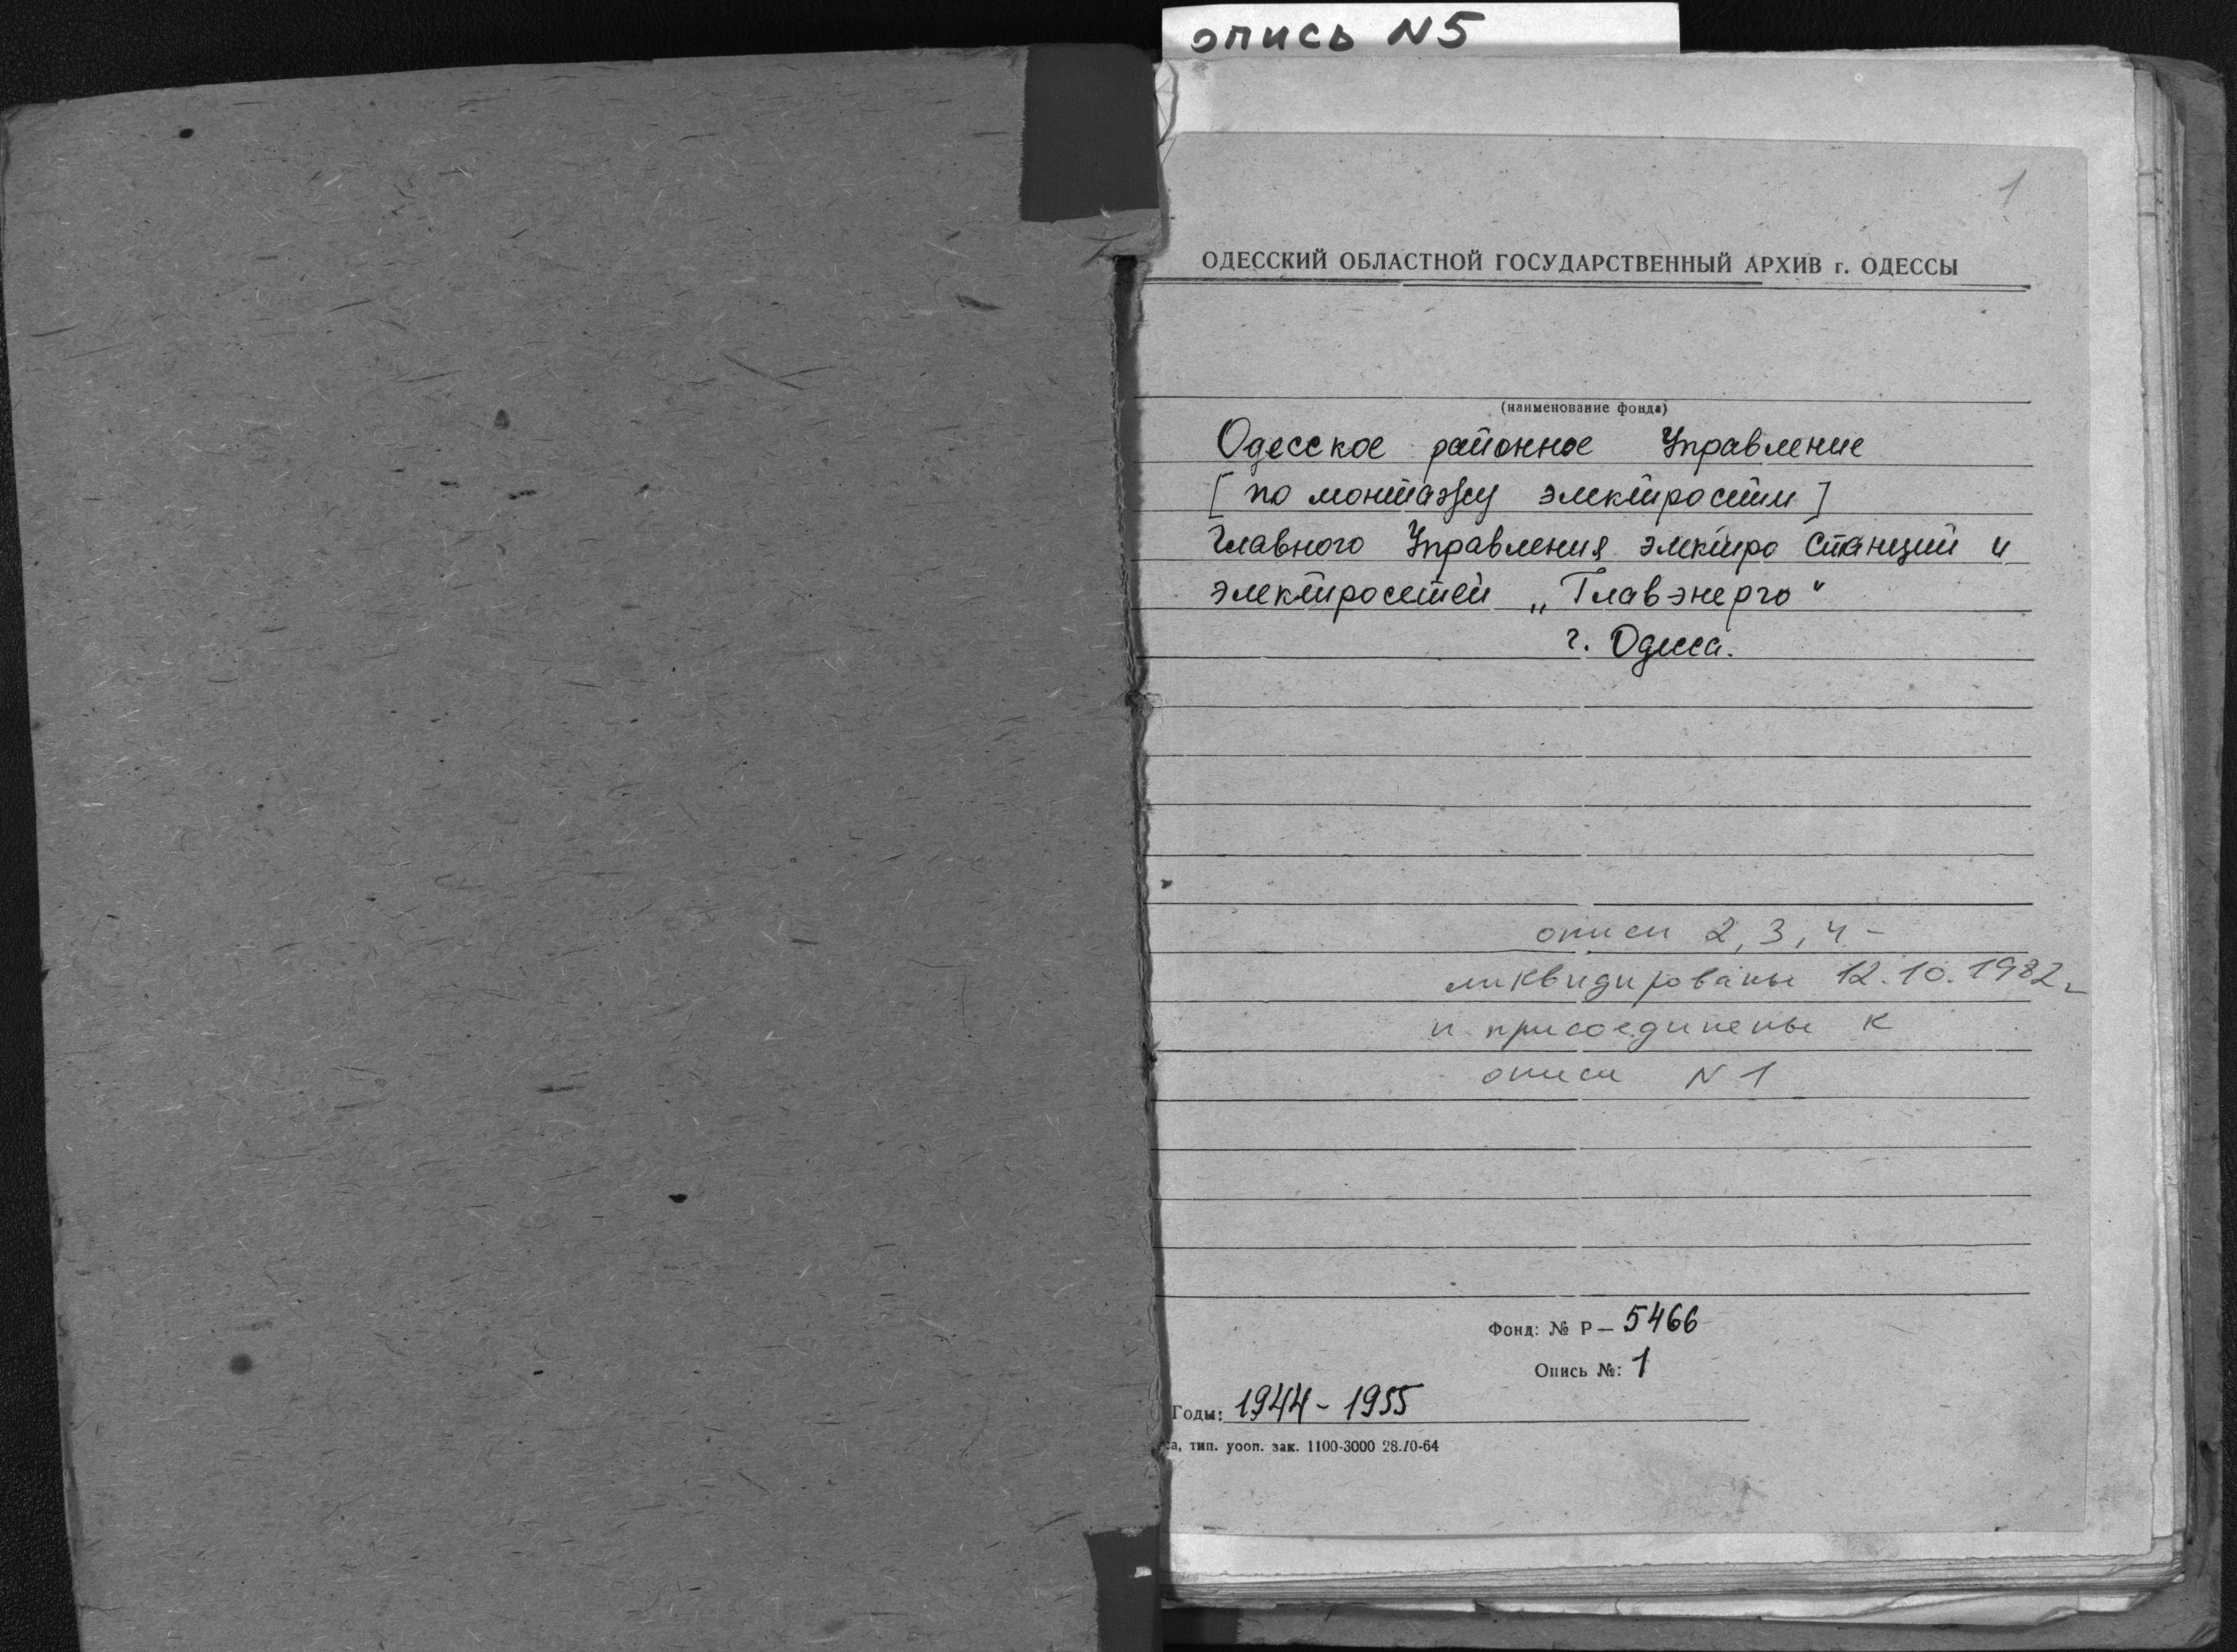 опись N5
1
ОДЕССКИЙ ОБЛАСТНОЙ ГОСУДАРСТВЕННЫЙ АРХИВ г. ОДЕССЫ
(наименование фонда)
Одесское районное Управление
[по монтажу электросети]
Главного Управления электро Станций и
электросетей „Главэнерго“
г. Одесса.
описи 2, 3, 4 –
ликвидированы 12.10.1982г
и присоединены к
описи N 1
Фонд: № Р — 5466
Опись №: 1
Годы: 1944 - 1955
са, тип. уооп. зак. 1100-3000 28.10-64